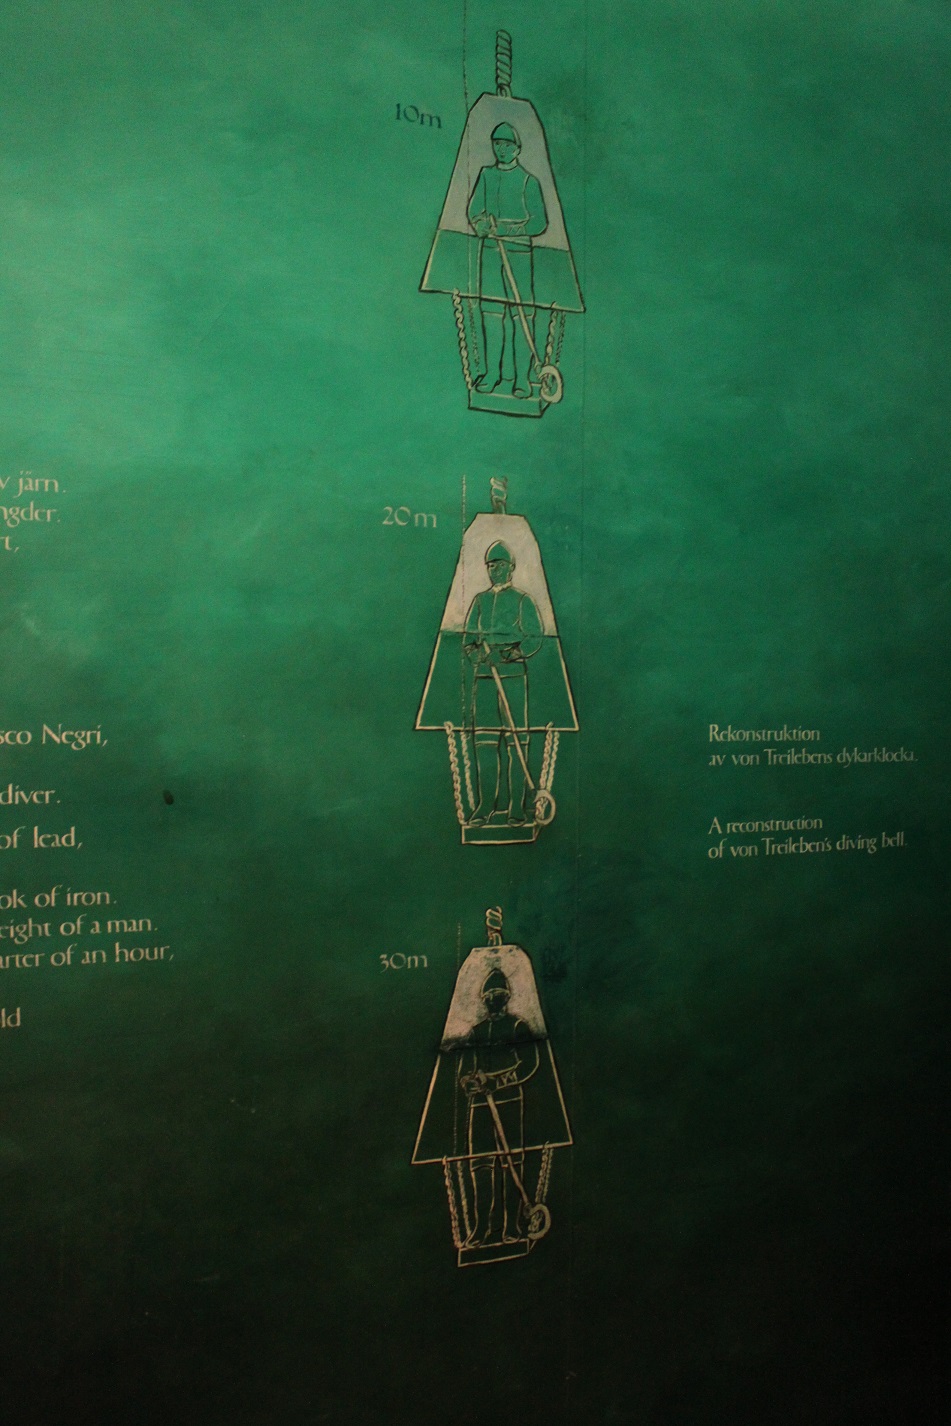 10m
v järn.
ngder.
rt,
20m
sco Negri,
diver.
of lead,
ok of iron.
eight of a man.
arter of an hour,
ld
Rekonstruktion
av von Treilebens dykarklocka.
A reconstruction
of von Treileben's diving bell.
30m